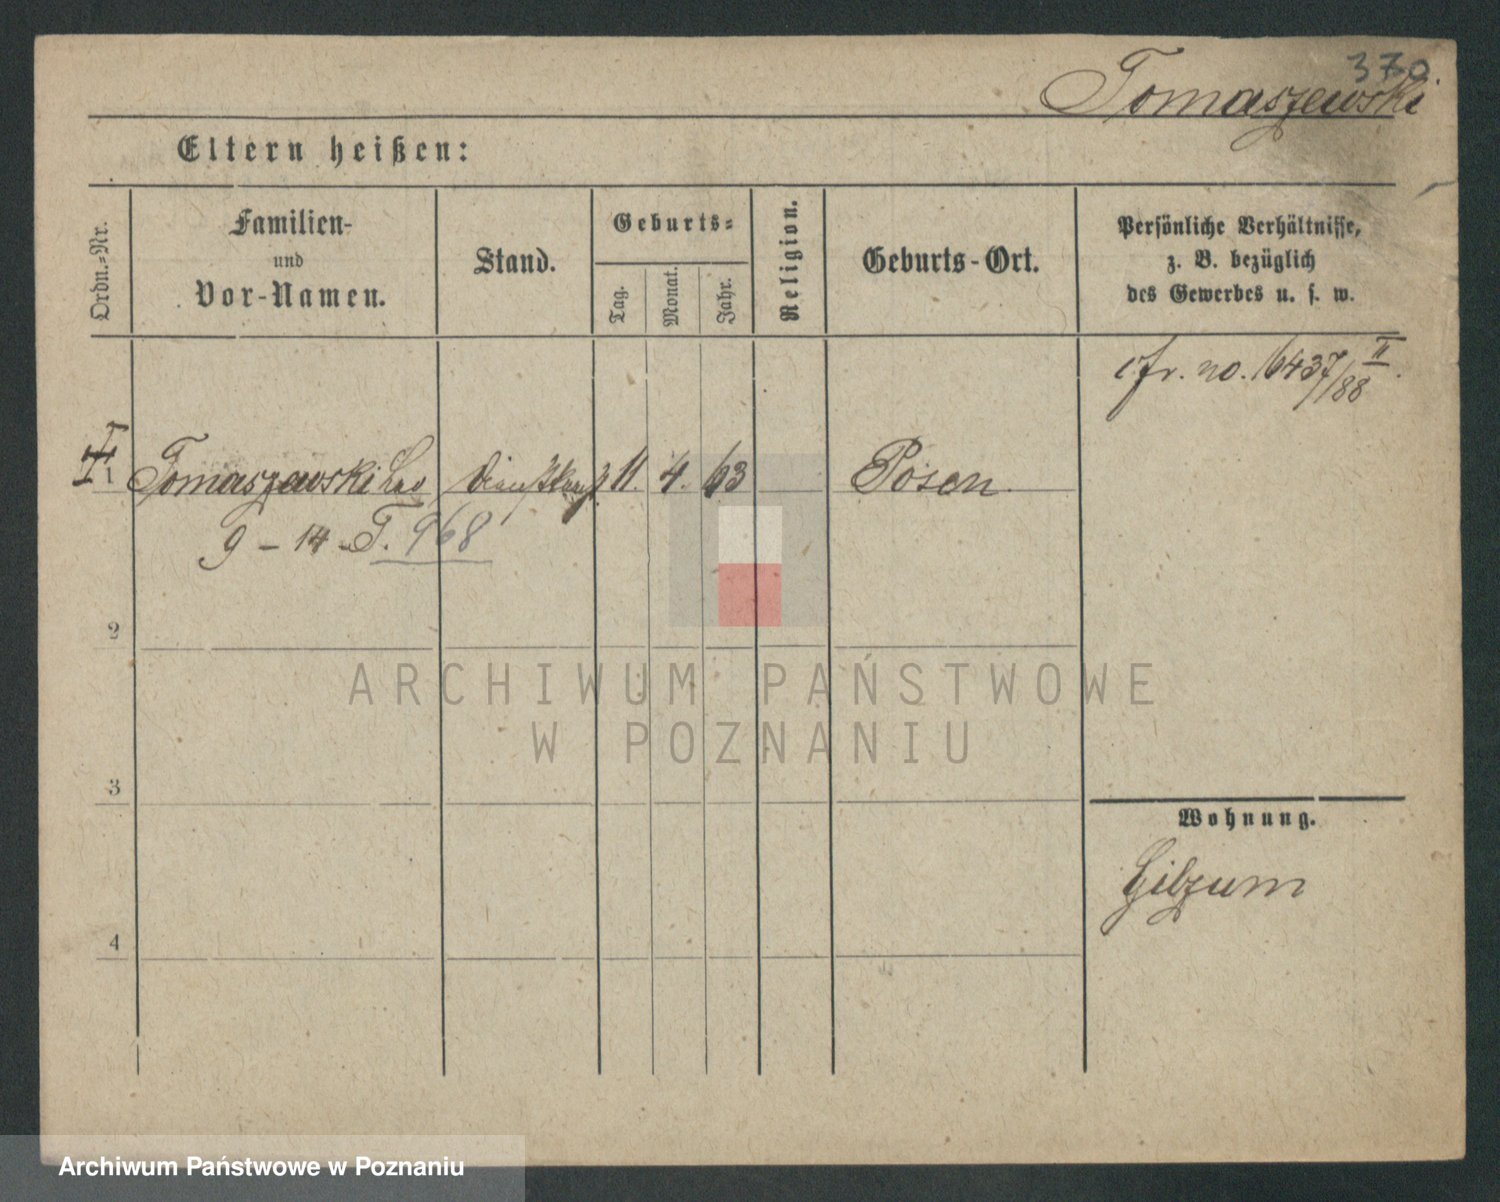 370.
Tomaszewski
Eltern heißen:
Ordn.-Nr.
Familien-
und
Vor-Namen.
Stand.
Geburts-
Tag.
Monat.
Jahr.
Religion.
Geburts-Ort.
Persönliche Verhältnisse,
z. B. bezüglich
des Gewerbes u. s. w.
no. 6437/88 II.
1 Tomaszewski Leo 11. 4. 63 Posen
9 - 14 - T. 968
2
3
4
Wohnung.
ARCHIWUM PAŃSTWOWE
W POZNANIU
Archiwum Państwowe w Poznaniu